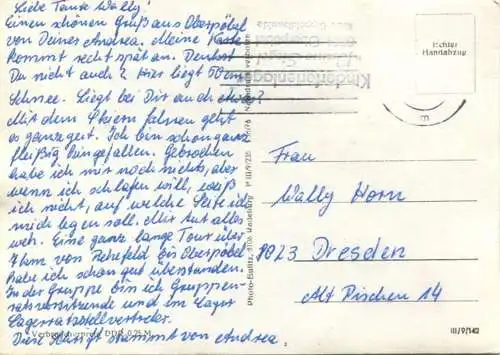 Liebe Tante Wally!
Einen schönen Gruß aus Oberpöbel
von Deiner Andrea. Meine Karte
kommt recht spät an. Denkst
Du nicht auch? Hier liegt 50 cm
Schnee. Liegt bei Dir auch etwas?
Mit dem Skiern fahren geht
es ganz gut. Ich bin schon ganz
fleißig hingefallen. Gebrochen
habe ich mir noch nichts, aber
wenn ich schlafen will, weiß
ich nicht, auf welche Seite ich
mich legen soll. Mir tut alles
weh. Eine ganz lange Tour über
7 km von Rehefeld bis Oberpöbel
habe ich schon gut überstanden.
In der Gruppe bin ich Gruppen-
ratsvorsitzende und im Lager
Lagerratsstellvertreter.
Diese Skrift stammt von Andrea.
Verbraucherpreis DDR 0,25 M
Photo-Baßitz, 4186 III/9/235
Kinderferienlager
Echter
Handabzug
Frau
Wally Horn
8023 Dresden
Alt Pischen 14
III/9/142